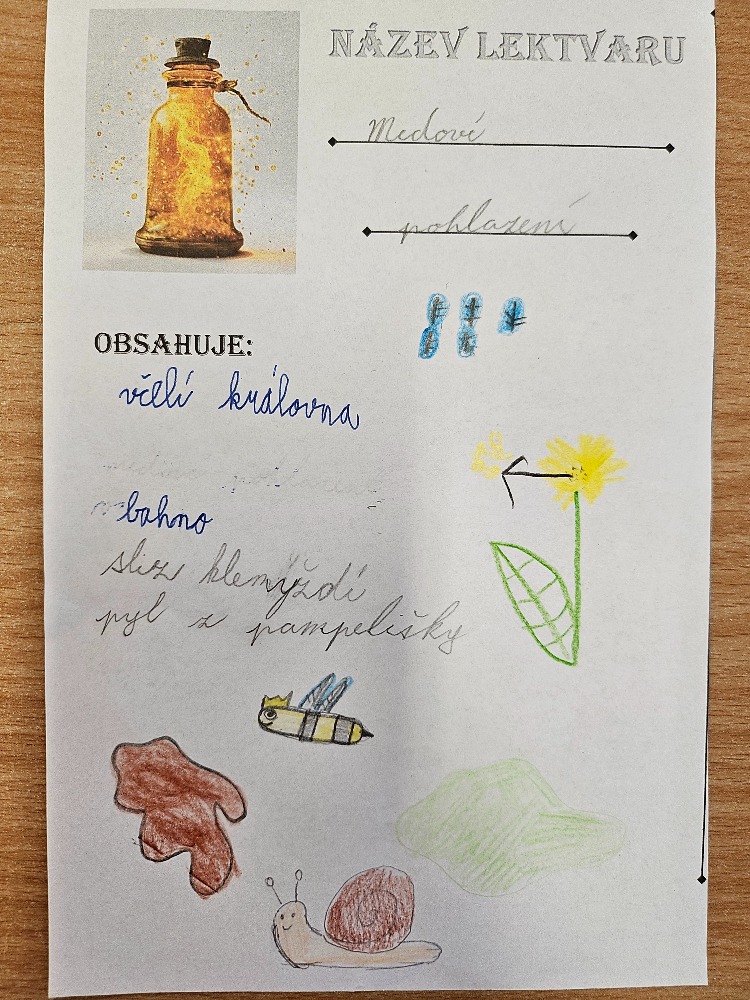 NÁZEV LEKTVARU
Medoví
pohlazení
OBSAHUJE:
včelí královna
bahno
sliz hlemýždí
pyl z pampelišky